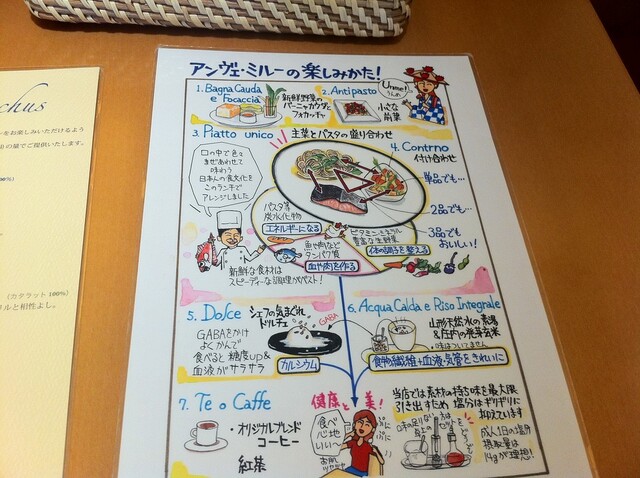 chus
をお楽しみいただけるよう
の量でご提供いたします。
100%)
(カタラット 100%)
ルと相性よし。
アンヴェ・ミルーの楽しみかた!
1. Bagna Cauda
e Focaccia
新鮮野菜の
バーニャカウダと
フォカッチャ
2. Antipasto
小さな
前菜
Ume!
うんめ
3. Piatto unico
主菜とパスタの盛り合わせ
4. Contrno
付け合わせ
口の中で色々
まぜあわせて
味わう
日本人の食文化を
このランチで
アレンジしました
単品でも…
2品でも…
3品でも
おいしい!
パスタ等
炭水化物
エネルギーになる
魚や肉など
タンパク質
血や肉を作る
ビタミン・ミネラル
豊富な生野菜
体の調子を整える
新鮮な食材は
スピーディーな調理がベスト!
5. Dolce
シェフの気まぐれ
ドルチェ
GABAをかけ
よくかんで
食べると糖度up&
血液がサラサラ
GABA
カルシウム
6. Acqua Calda e Riso Integrale
山形天然水の素湯
&庄内の発芽玄米
・味はついてません
食物繊維+血液・気管をきれいに
7. Te o Caffe
・オリジナルブレンド
コーヒー
紅茶
健康と美!
食べ
心地
いい〜
お肌
ツヤツヤ
ぷに
ぷに
当店では素材の持ち味を最大限
引き出すため 塩分はギリギリに
抑えています
成人1日の塩分
摂取量は
14gが理想!